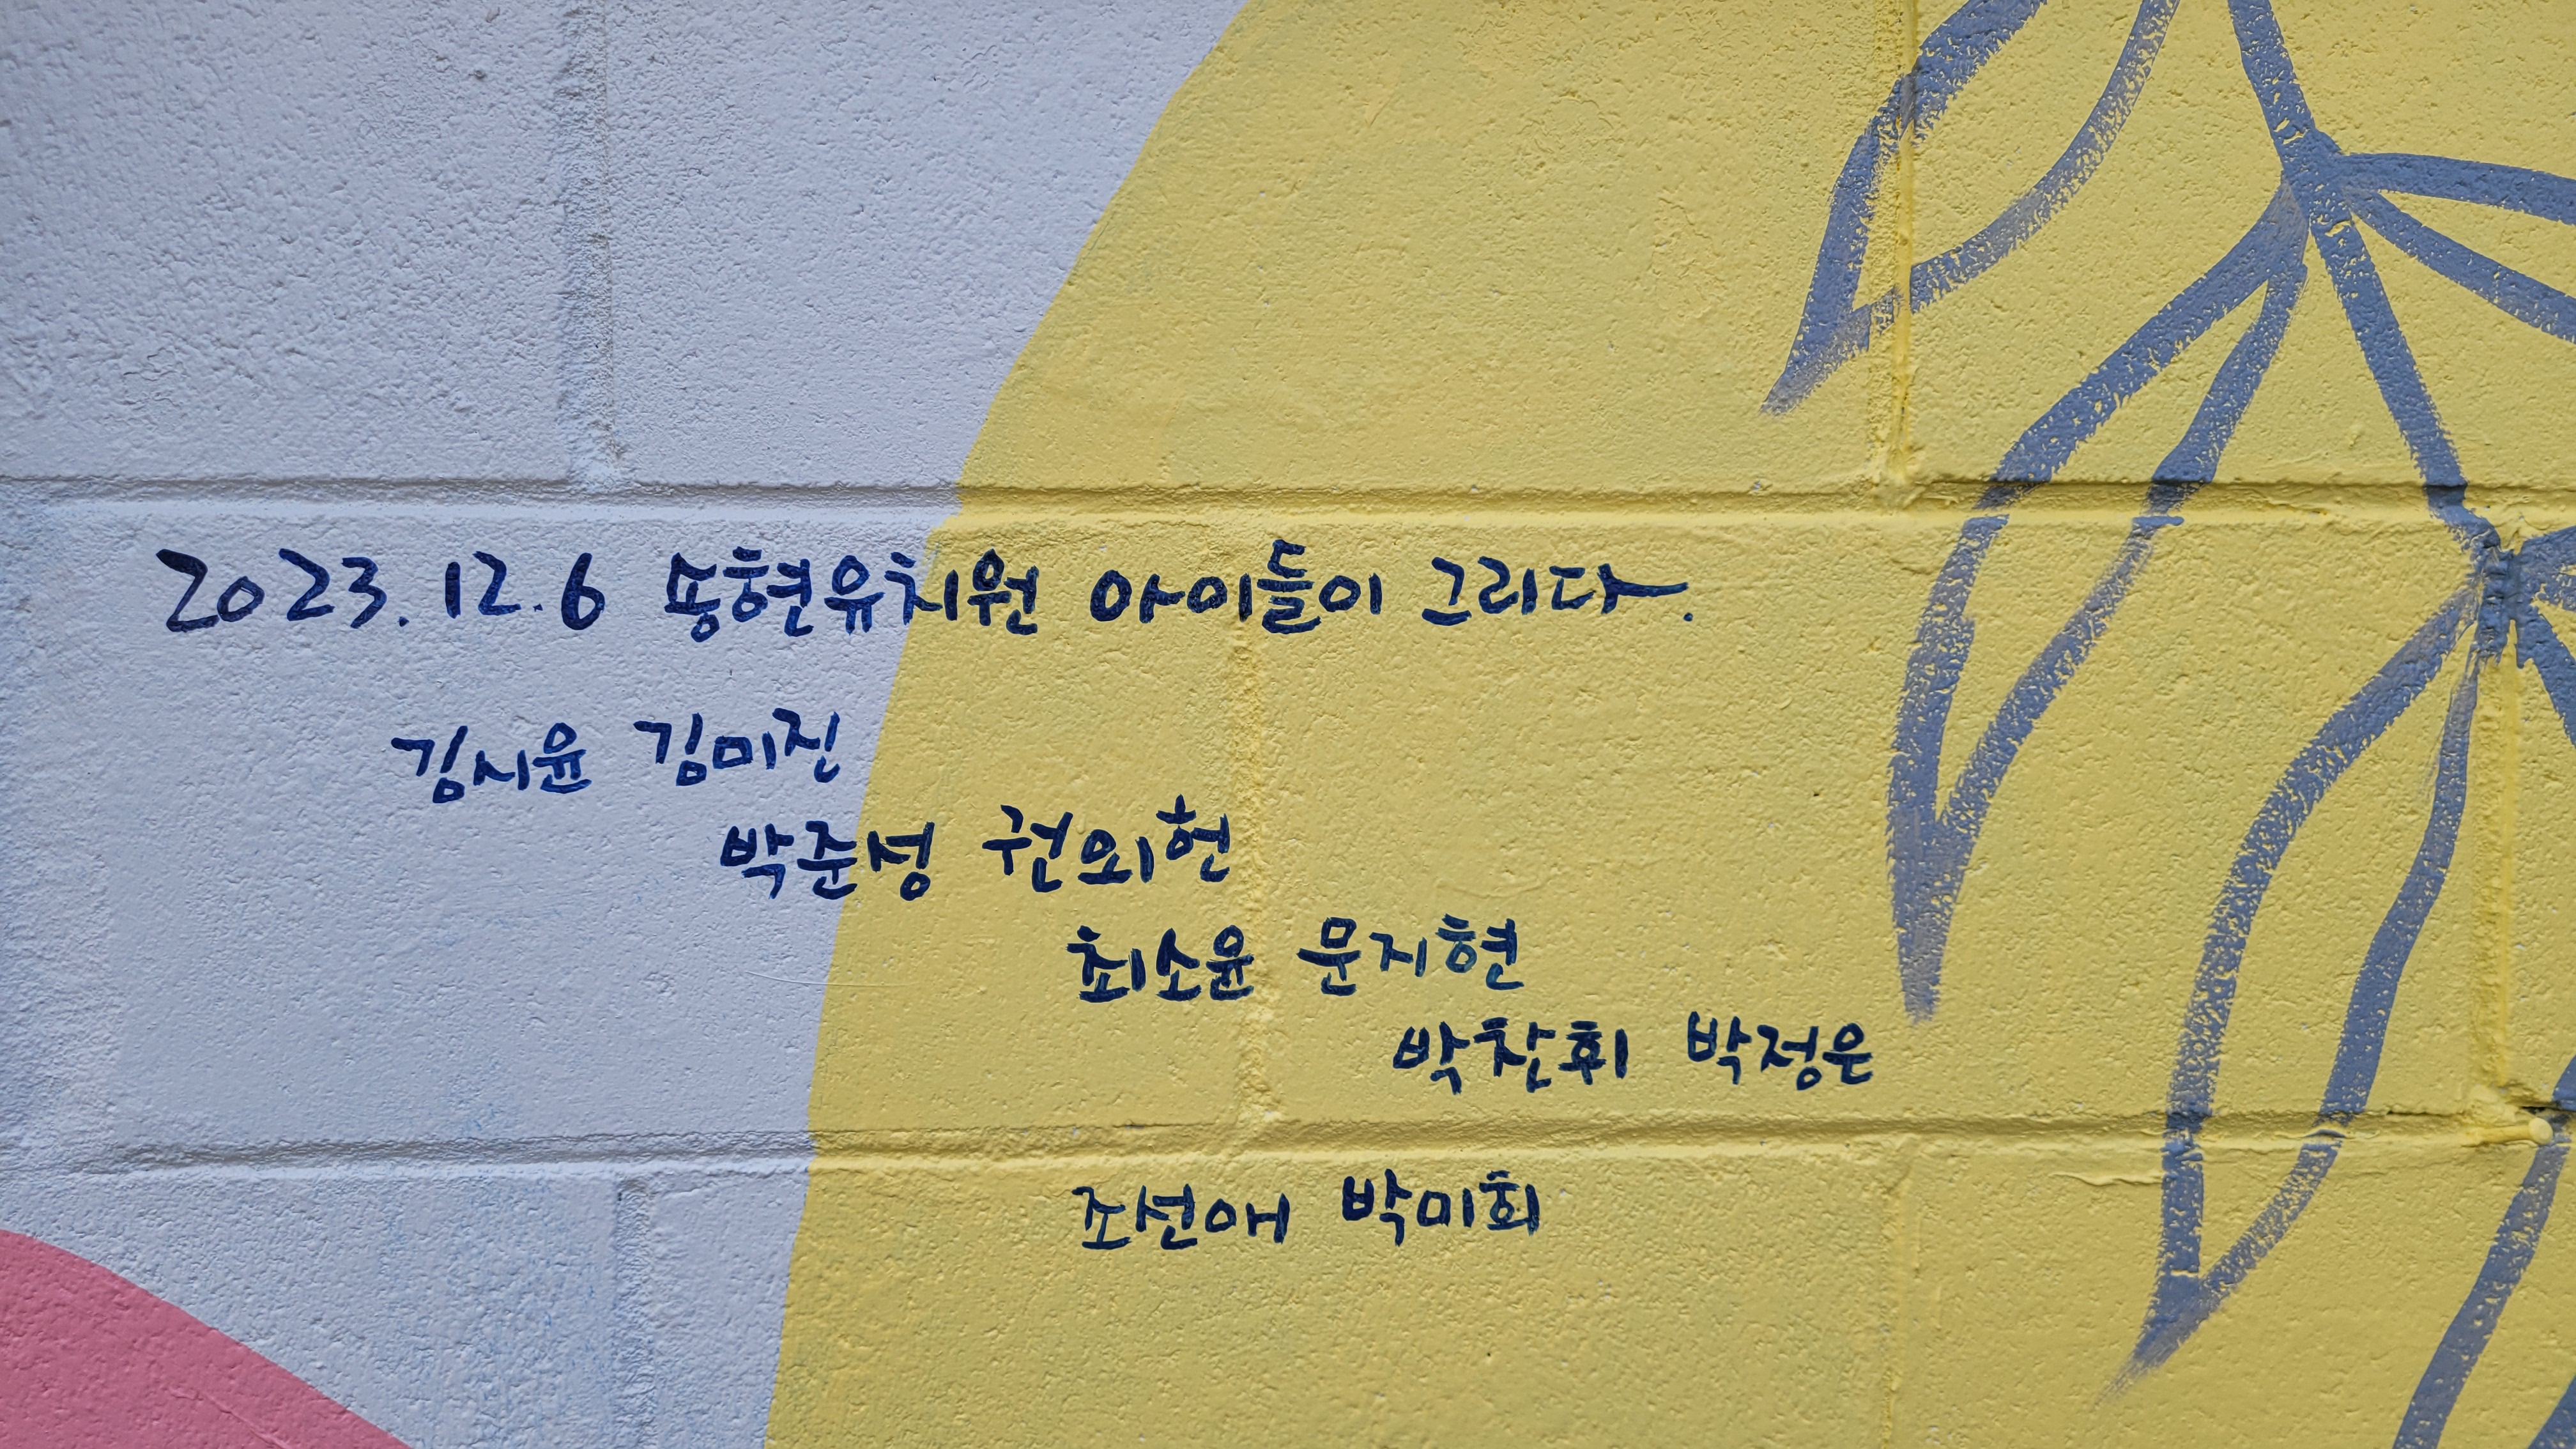 2023.12.6 송현유치원 아이들이 그리다.
김시윤 김미진
박준성 권외헌
최소윤 문지현
박찬휘 박정은
조선애 박미희